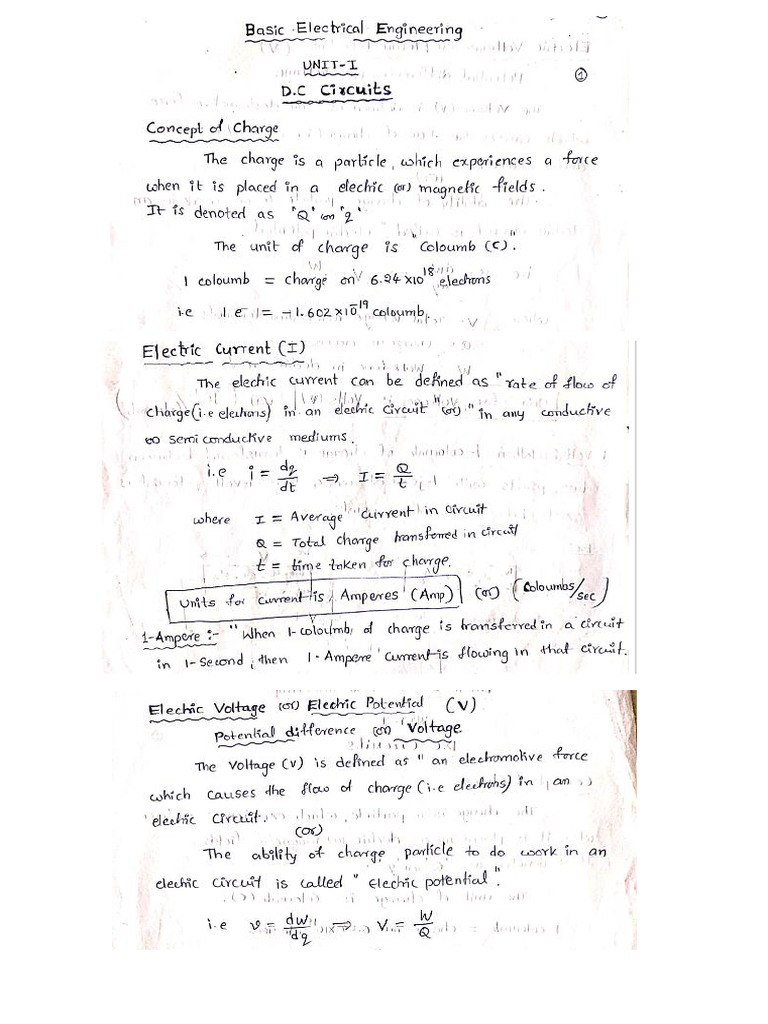 Basic Electrical Engineering
UNIT-I
①
D.C Circuits
Concept of Charge
The charge is a particle, which experiences a force
when it is placed in a electric (or) magnetic fields.
It is denoted as "Q" (or) "q"
The unit of charge is "Coloumb (C)".
1 coloumb = charge on 6.24 ×10¹⁸ electrons
i.e 1 e = -1.602×10⁻¹⁹ coloumb,
Electric Current (I)
The electric current can be defined as "rate of flow of
charge (i.e electrons) in an electric circuit" (or) "in any conductive
(or) semiconductive mediums.
i.e i = dq/dt ⇒ I = Q/t
where I = Average current in circuit
Q = Total charge transferred in circuit
t = time taken for charge.
Units for current is Amperes (Amp) (or) (Coloumbs/sec)
1-Ampere :- "When 1-coloumb of charge is transferred in a circuit
in 1-second, then 1-Ampere current is flowing in that circuit.
Electric Voltage (or) Electric Potential (V)
Potential difference (or) Voltage.
The Voltage (V) is defined as "an electromotive force
which causes the flow of charge (i.e electrons) in an
electric circuit.
(or)
The ability of charge particle to do work in an
electric circuit is called "Electric potential".
i.e v = dW/dq ⇒ V = W/Q